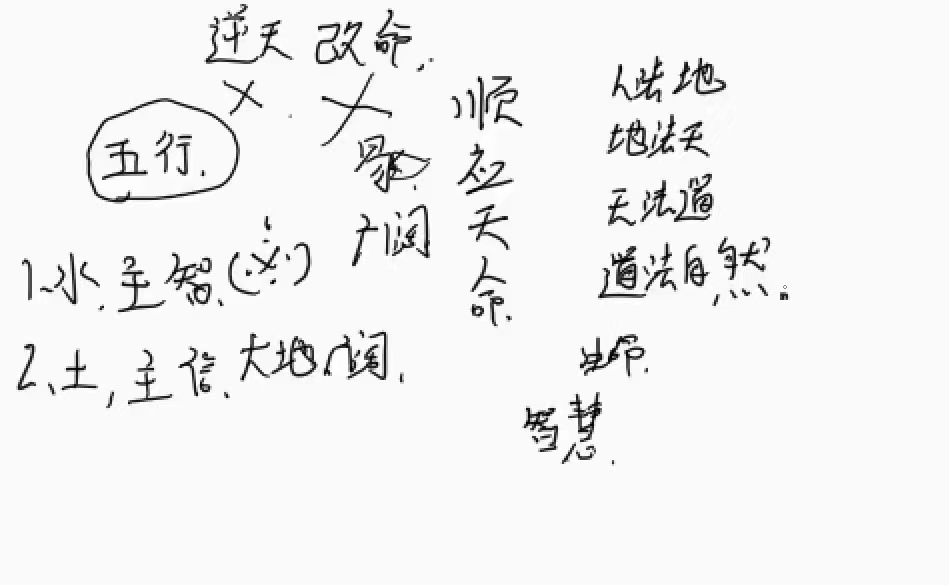 逆天改命.
五行.
广阔
1.水.主智.
2、土,主信.大地广阔.
顺应天命.
人法地
地法天
天法道
道法自然。
生命.
智慧.